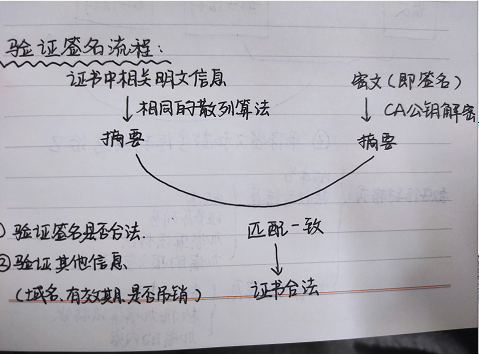 验证签名流程:
证书中相关明文信息
密文(即签名)
↓相同的散列算法
↓CA公钥解密
摘要
摘要
①验证签名是否合法.
匹配一致
②验证其他信息
↓
(域名.有效期.是否吊销)
证书合法